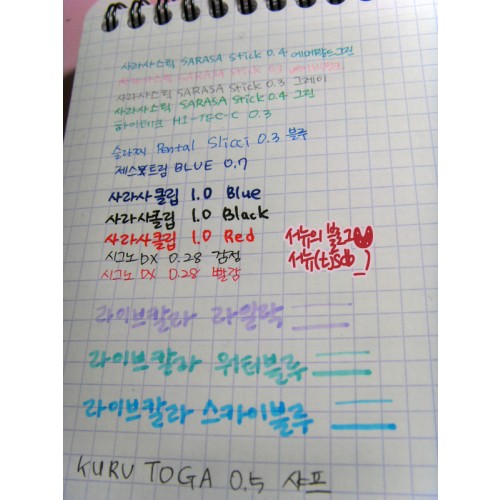 사라사스틱 SARASA Stick 0.4 에메랄드그린
사라사스틱 SARASA Stick
사라사스틱 SARASA Stick 0.3 그레이
사라사스틱 SARASA Stick 0.4 그린
하이테크 HI-TEC-C 0.3
슬라찌 Pental Slicci 0.3 블루
제스트림 BLUE 0.7
사라사클립 1.0 Blue
사라사클립 1.0 Black
사라사클립 1.0 Red
시그노 DX 0.28 검정
시그노 DX 0.28 빨강
서뉴의 블로그
서뉴(tjsb_)
라이브칼라 라일락
라이브칼라 워터블루
라이브칼라 스카이블루
KURU TOGA 0.5 샤프